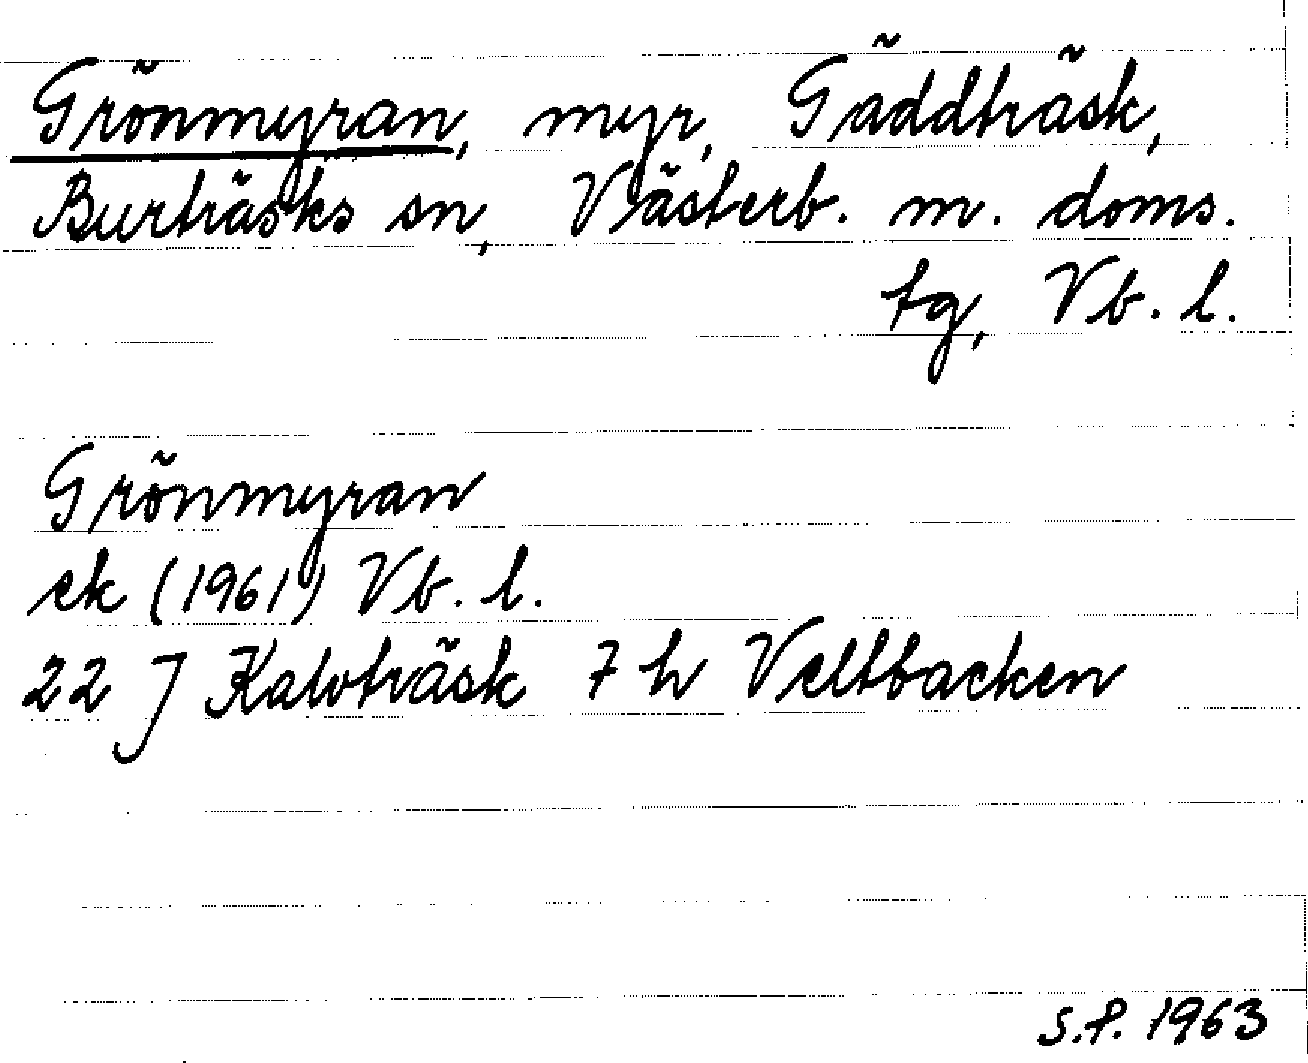 Grönmyran, myr, Gäddträsk,
Burträsks sn, Västerb. m. doms.
tg, Vb. l.
Grönmyran
ek (1961) Vb. l.
22 J Kalvträsk 7 h Veltbacken
S.P. 1963